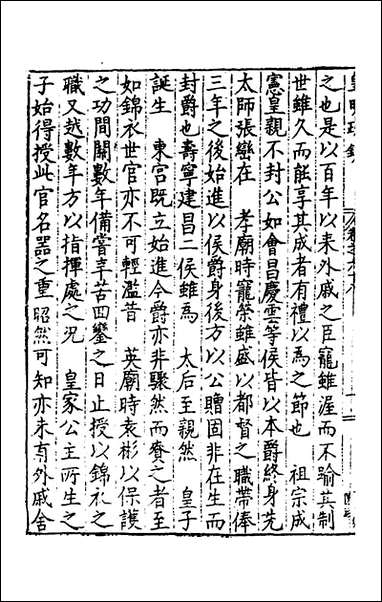 之也是以百年以来外戚之臣寵雖渥而不踰其制
世雖久而能享其成者有禮以為之節也　祖宗成
憲皇親不封公如會昌慶雲等侯皆以本爵終身先
太師張巒在　孝廟時寵榮雖盛以都督之職帶俸
三年之後始進以侯爵身後方以公贈固非在生而
封爵也壽寧建昌二侯雖為　太后至親然　皇子
誕生　東宮既立始進今爵亦非驟然而賚之者至
如錦衣世官亦不可輕濫昔　英廟時袁彬以保護
之功間關數年備嘗辛苦四鑾之日止授以錦衣之
職又越數年方以指揮處之况　皇家公主所生之
子始得授此官名器之重昭然可知亦未有外戚舍